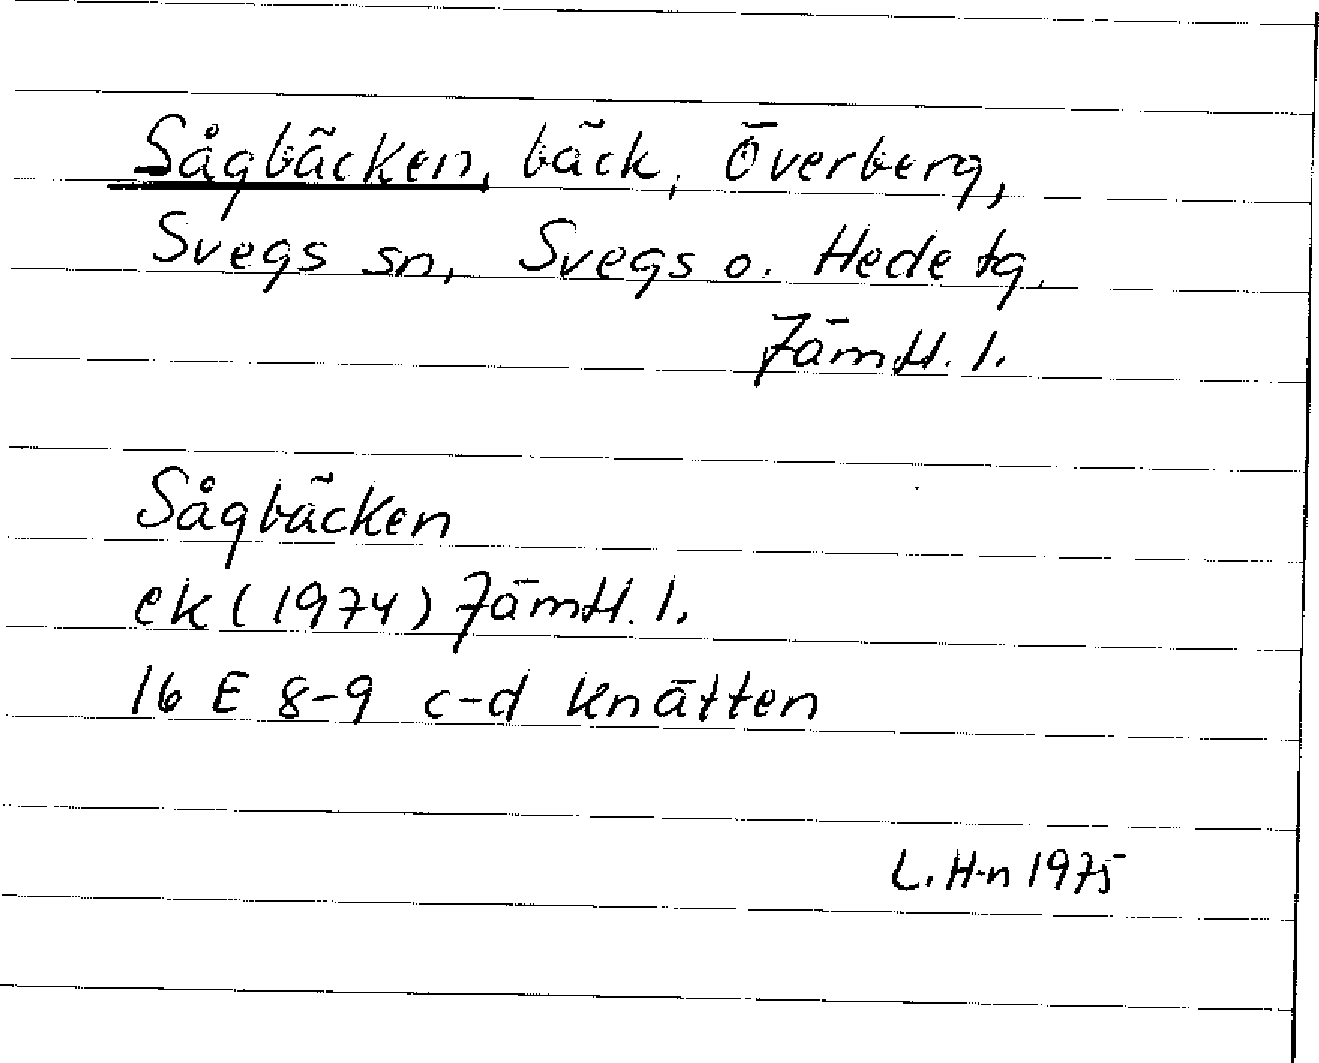 Sågbäcken, bäck, Överberg,
Svegs sn, Svegs o. Hede tg.
Jämtl. l.
Sågbäcken
ek (1974) Jämtl. l.
16 E 8-9 c-d Knätten
L. H-n 1975